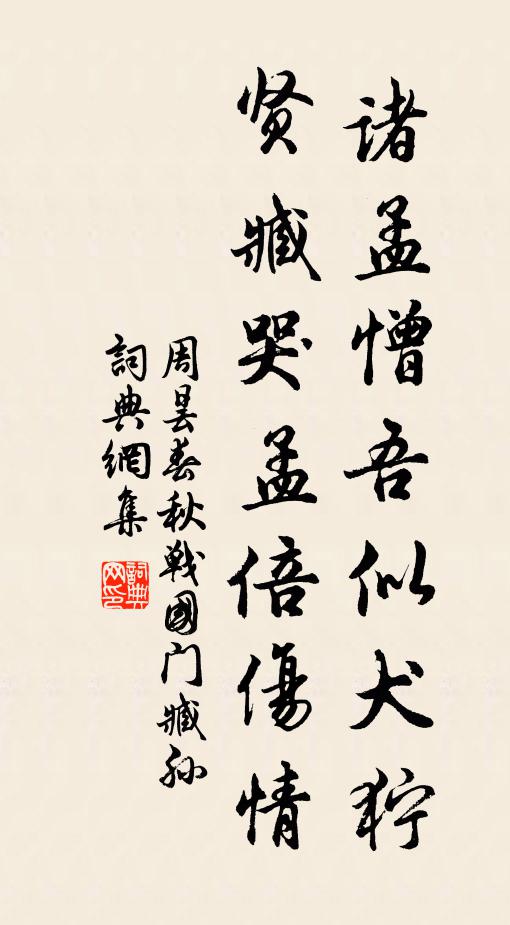 诸孟憎吾似犬狞
贤臧哭孟倍傷情
周昙春秋戦國门臧孙
詞典網集
詞典网印